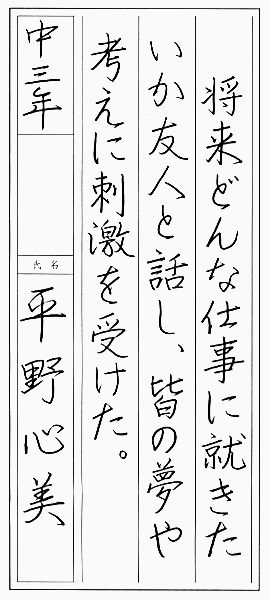 将来どんな仕事に就きた
いか友人と話し、皆の夢や
考えに刺激を受けた。
中三年
氏名
平野心美